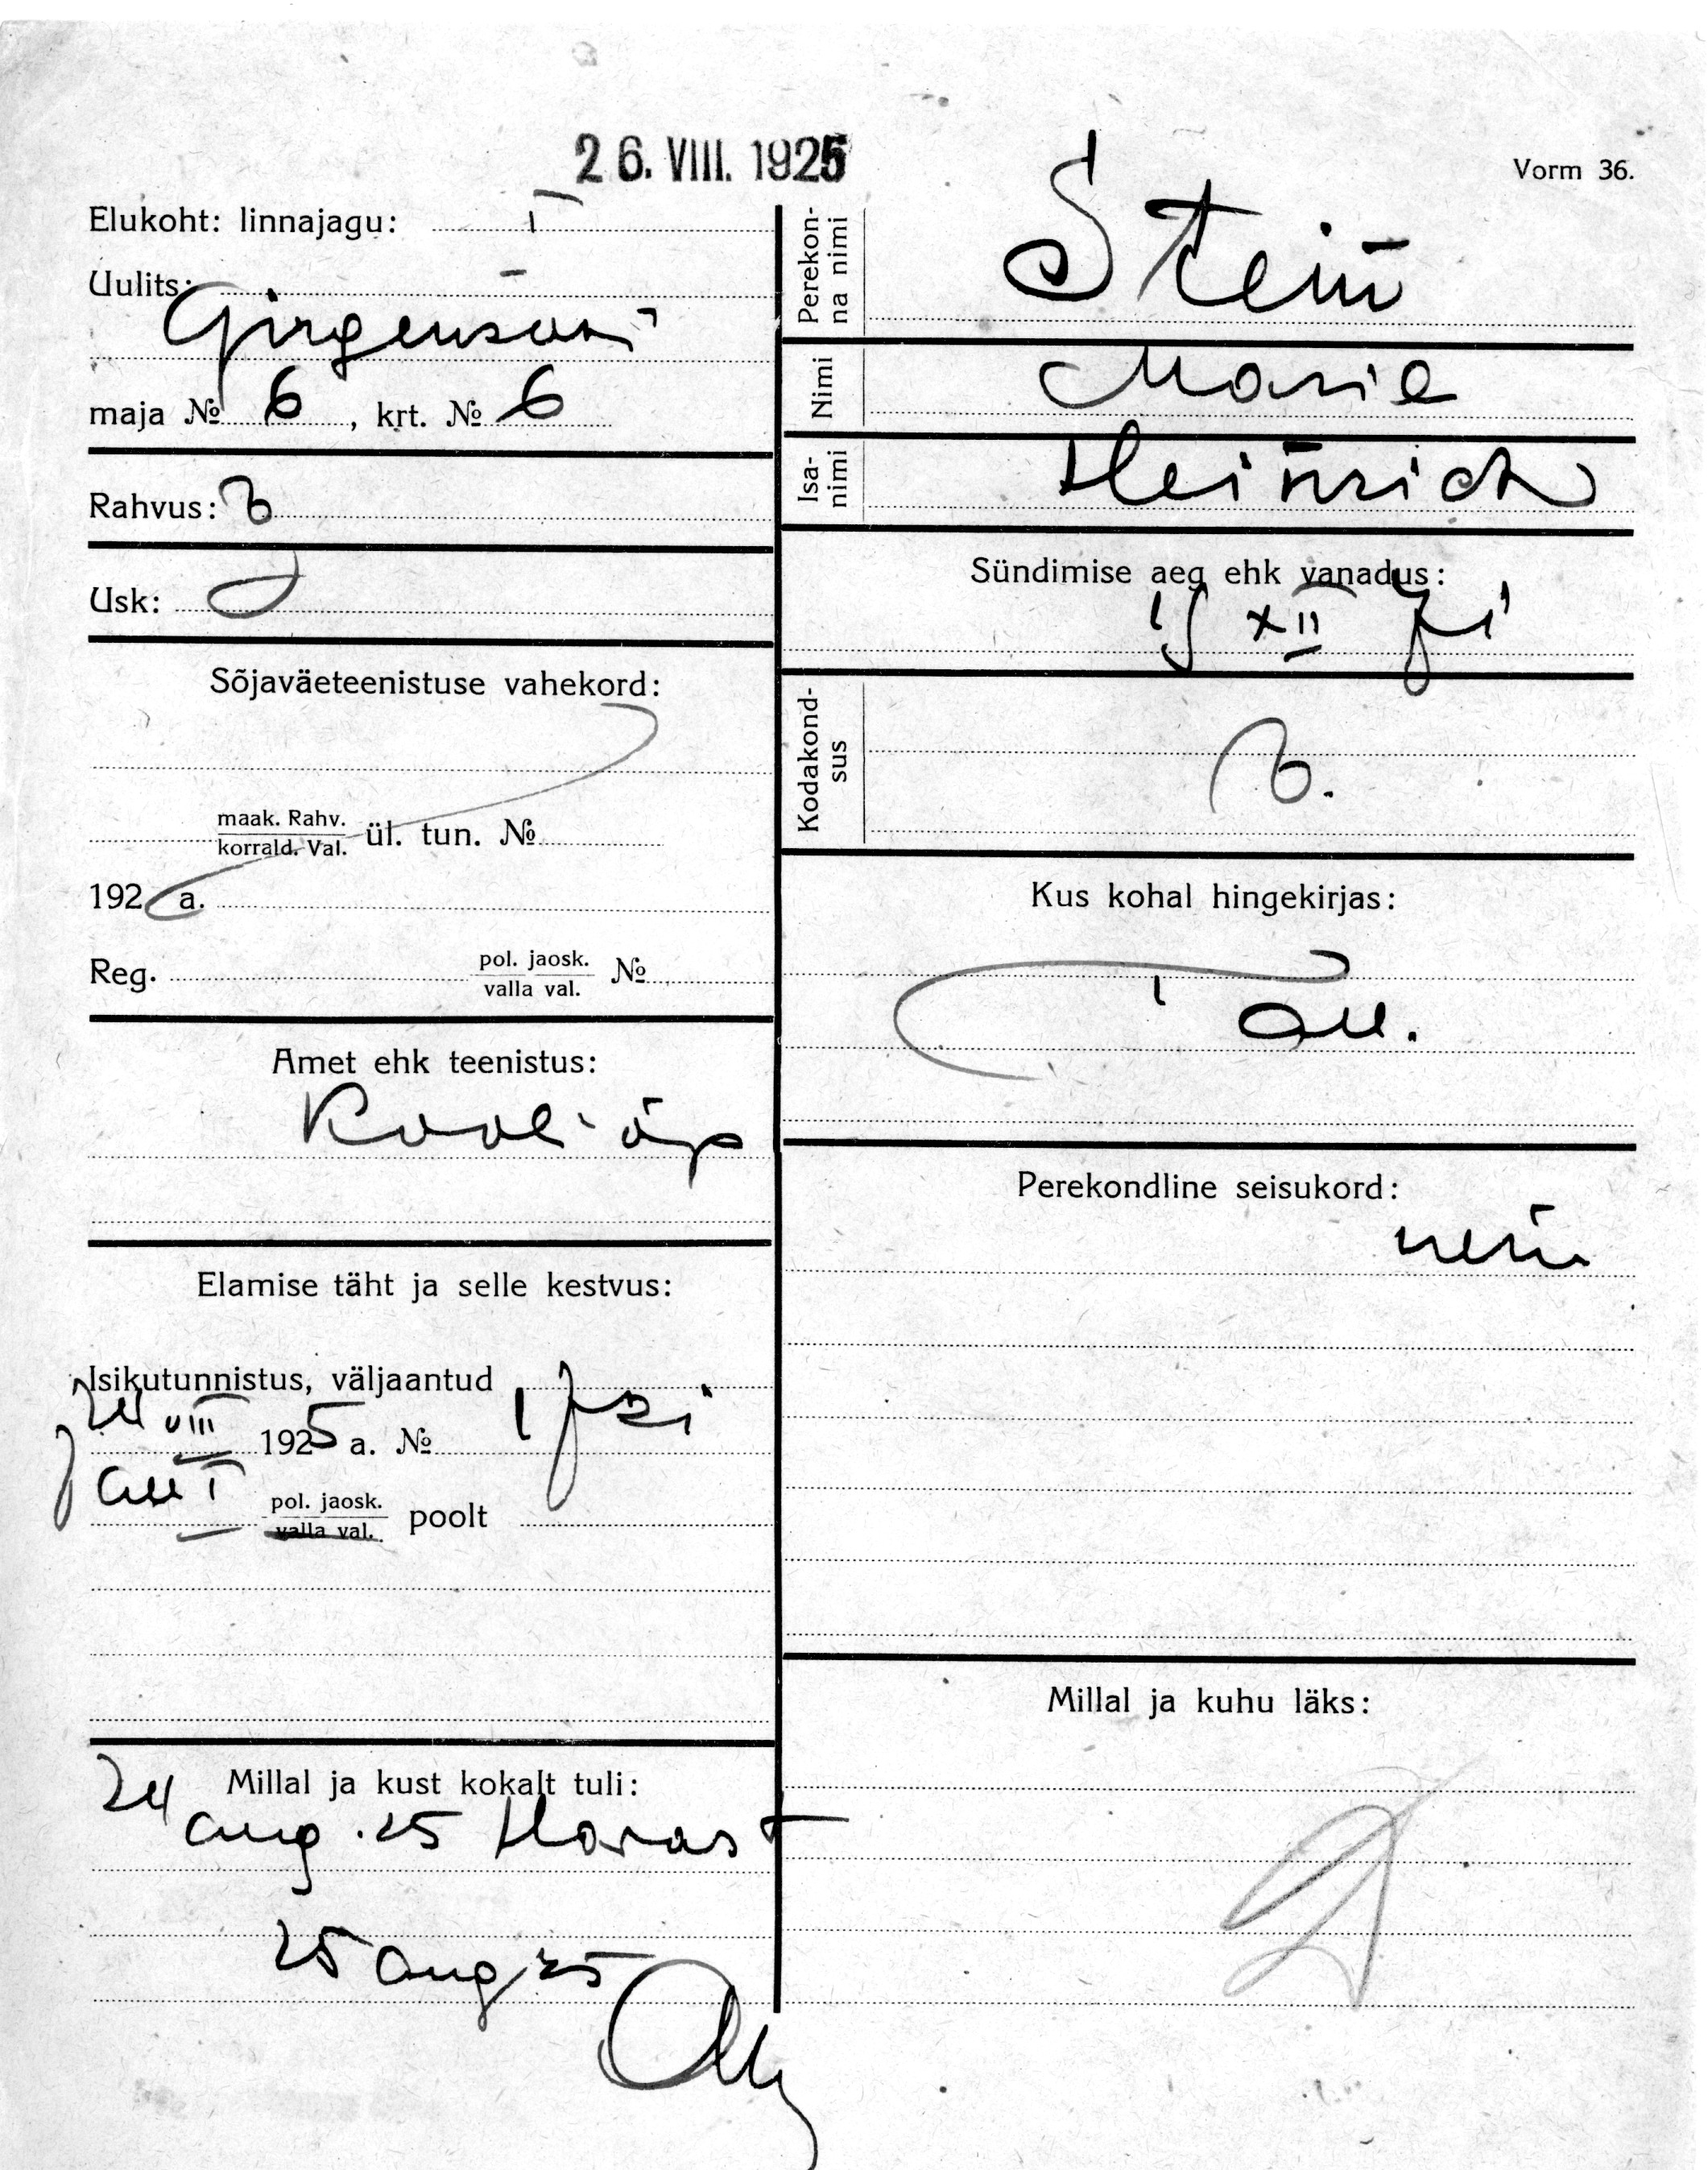 26. VIII. 1925
Vorm 36.
Elukoht: linnajagu: I
Uulits:
Girgensoni
maja № 6, krt. № 6
Rahvus:
Usk:
Sõjaväeteenistuse vahekord:
maak. Rahv.
korrald. Val. ül. tun. №
192 a.
Reg. pol. jaosk. №
valla val.
Amet ehk teenistus:
Kooli õp
Elamise täht ja selle kestvus:
Isikutunnistus, väljaantud
24 VIII 1925 a. №
I pol. jaosk. poolt
valla val.
Millal ja kust kokalt tuli:
24
aug. 25
25 aug 25
Perekon-
na nimi
Stein
Nimi
Marie
Isa-
nimi
Heinrich
Sündimise aeg ehk vanadus:
XII
Kodakond-
sus
Kus kohal hingekirjas:
Perekondline seisukord:
Millal ja kuhu läks: